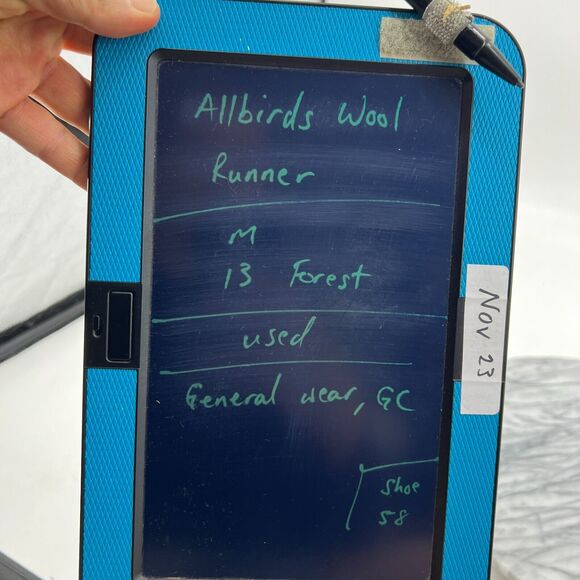 Allbirds Wool
Runner
M
13 Forest
used
General wear, GC
Shoe
58
Nov 23